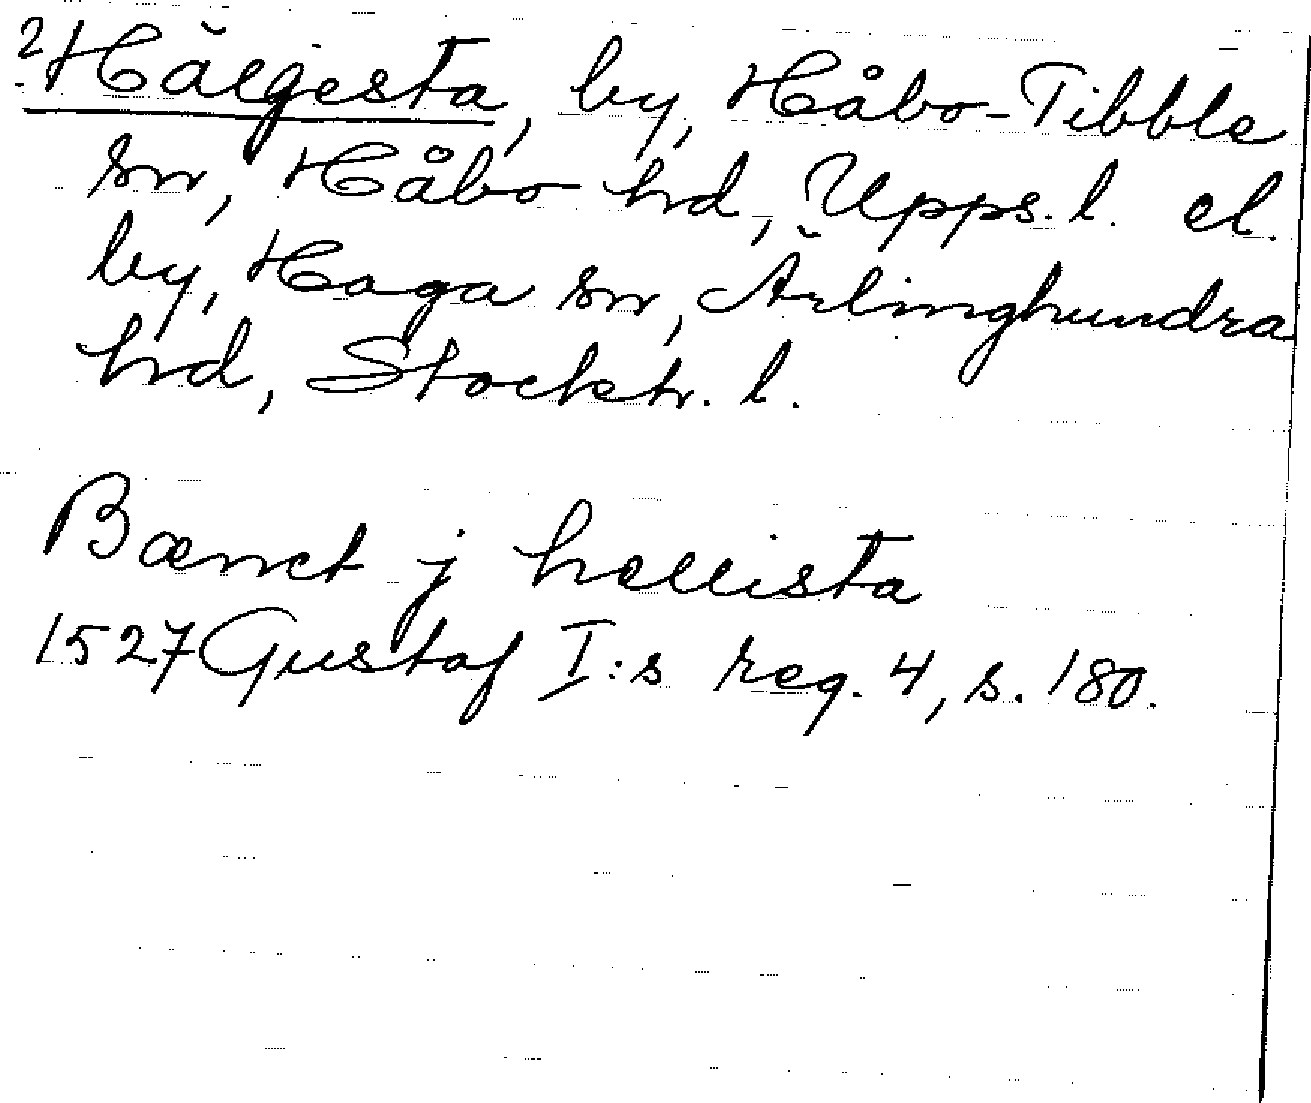 ? Hälgesta, by, Håbo-Tibble
sn, Håbo hd, Upps. l. el.
by, Haga sn, Ärlinghundra
hd, Stockh. l.
Bænct j hællista
1527 Gustaf I:s reg. 4, s. 180.